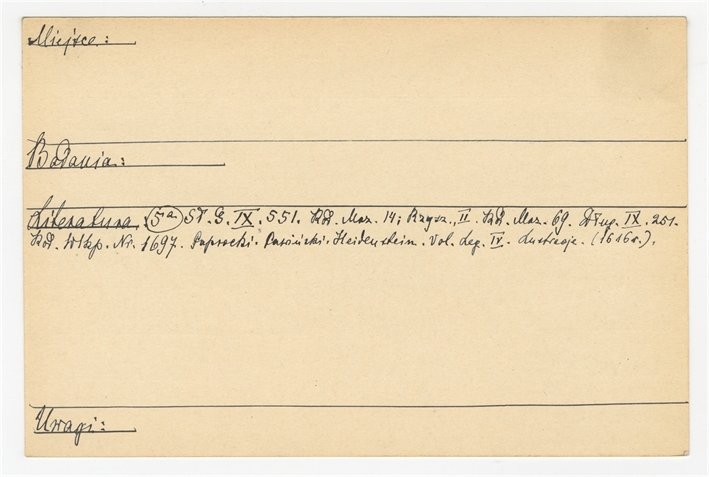 Miejsce:
Badania:
Literatura: 5a SŁ. G. IX. 551. Kod. Maz. 14; Rzysz., II. Kod. Maz. 69. Dług. IX. 251.
Kod. Wlkp. Nr. 1697. Paprocki. Pasiński. Heidenstein. Vol. Leg. IV. Lustracje. (1616r.).
Uwagi: